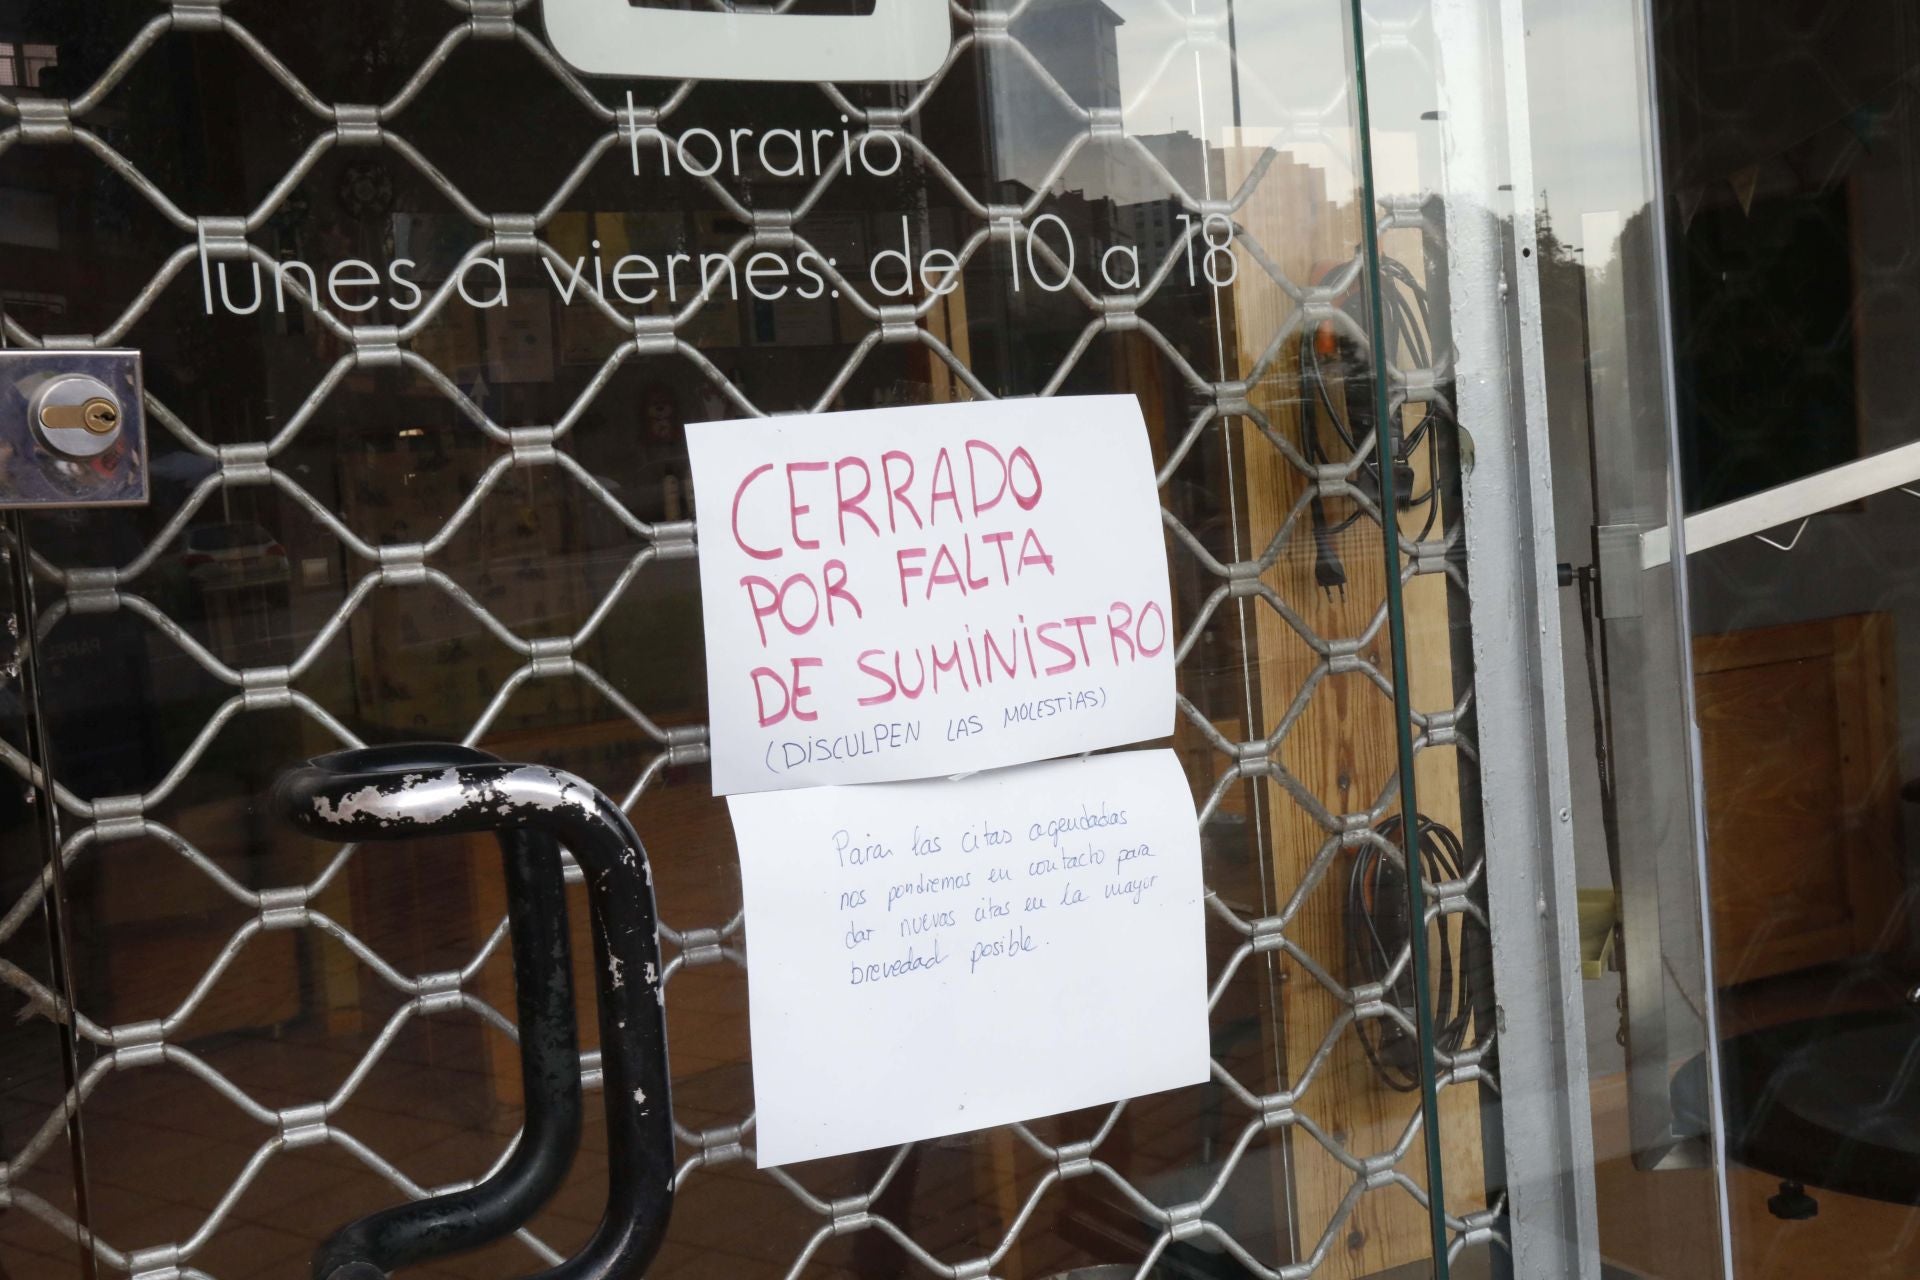 horario
lunes a viernes: de 10 a 18
CERRADO
POR FALTA
DE SUMINISTRO
(DISCULPEN LAS MOLESTIAS)
Para las citas agendadas
nos pondremos en contacto para
dar nuevas citas en la mayor
brevedad posible.
PAPEL